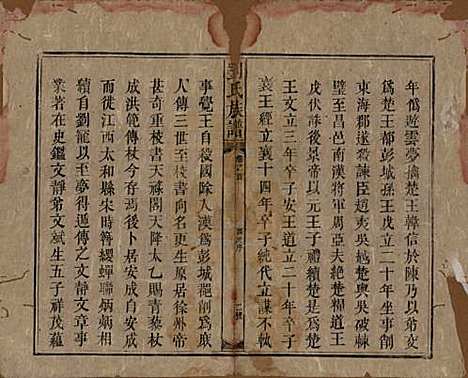 年偽遊雲夢擒楚王韓信於陳乃以弟交
爲楚王都彭城孫王戊立二十年坐事削
東海郡遂殺諫臣趙夷吳越楚與吳破棘
璧至昌邑南漢將軍周亞夫絶楚糧道王
戊伏劍景帝以元王子禮續楚是爲
王文立三年卒子安王道立二十年卒子
襄王經立襄十四年卒子統代立謀不執
劉氏族譜
事覺王自殺國除入漢爲彭城郡削爲庶
人傳三世至校書向名更生原居徐州帝
甚奇之校書天祿閣天降太乙賜青藜杖
成洪範傳杖今存焉後卜居安成自安成
而徙江西太和縣宋時簪纓蟬聯大都
續自劉寵以至夢得遞傳之文靜文章事
業著在史鑑文靜弟文斌生五子祥茂蘊